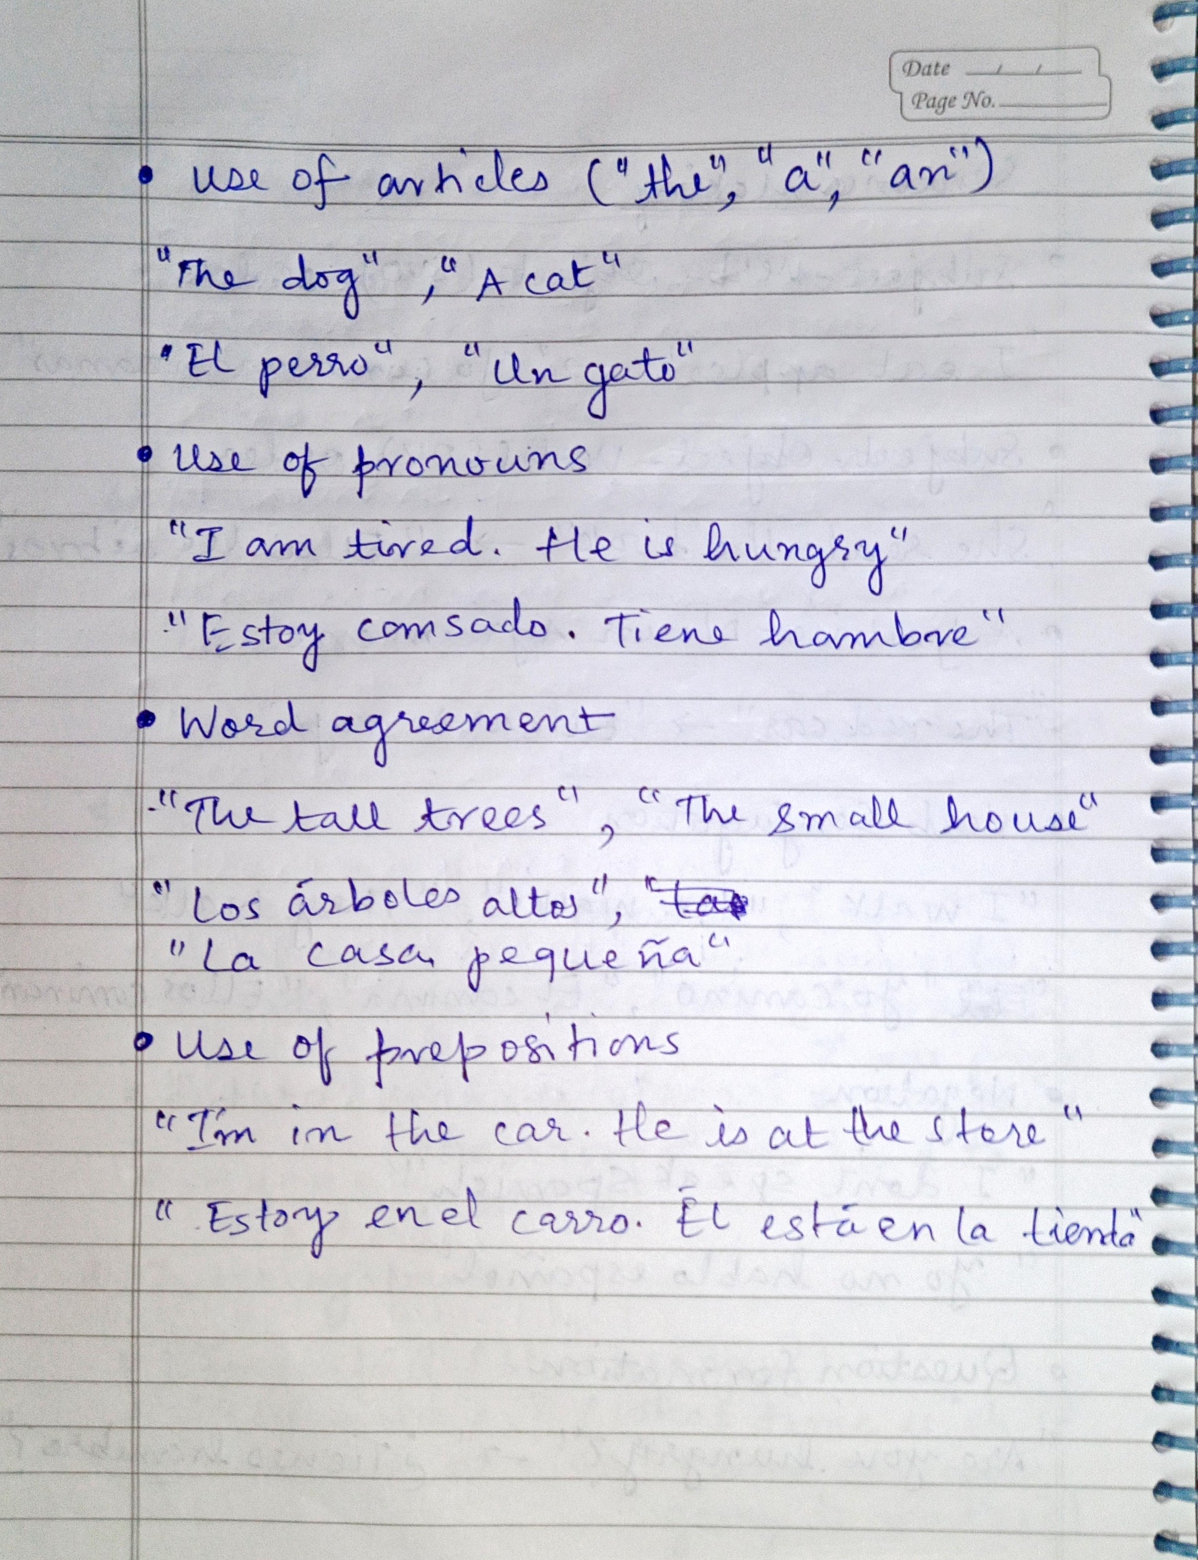 Date __/__/__
Page No. ______
• Use of articles ("the", "a", "an")
"The dog", "A cat"
"El perro", "Un gato"
• Use of pronouns
"I am tired. He is hungry"
"Estoy comsado. Tiene hambre"
• Word agreement
"The tall trees", "The small house"
"Los árboles altos",
"La casa pequeña"
• Use of prepositions
"I'm in the car. He is at the store"
"Estoy en el carro. Él está en la tienda"